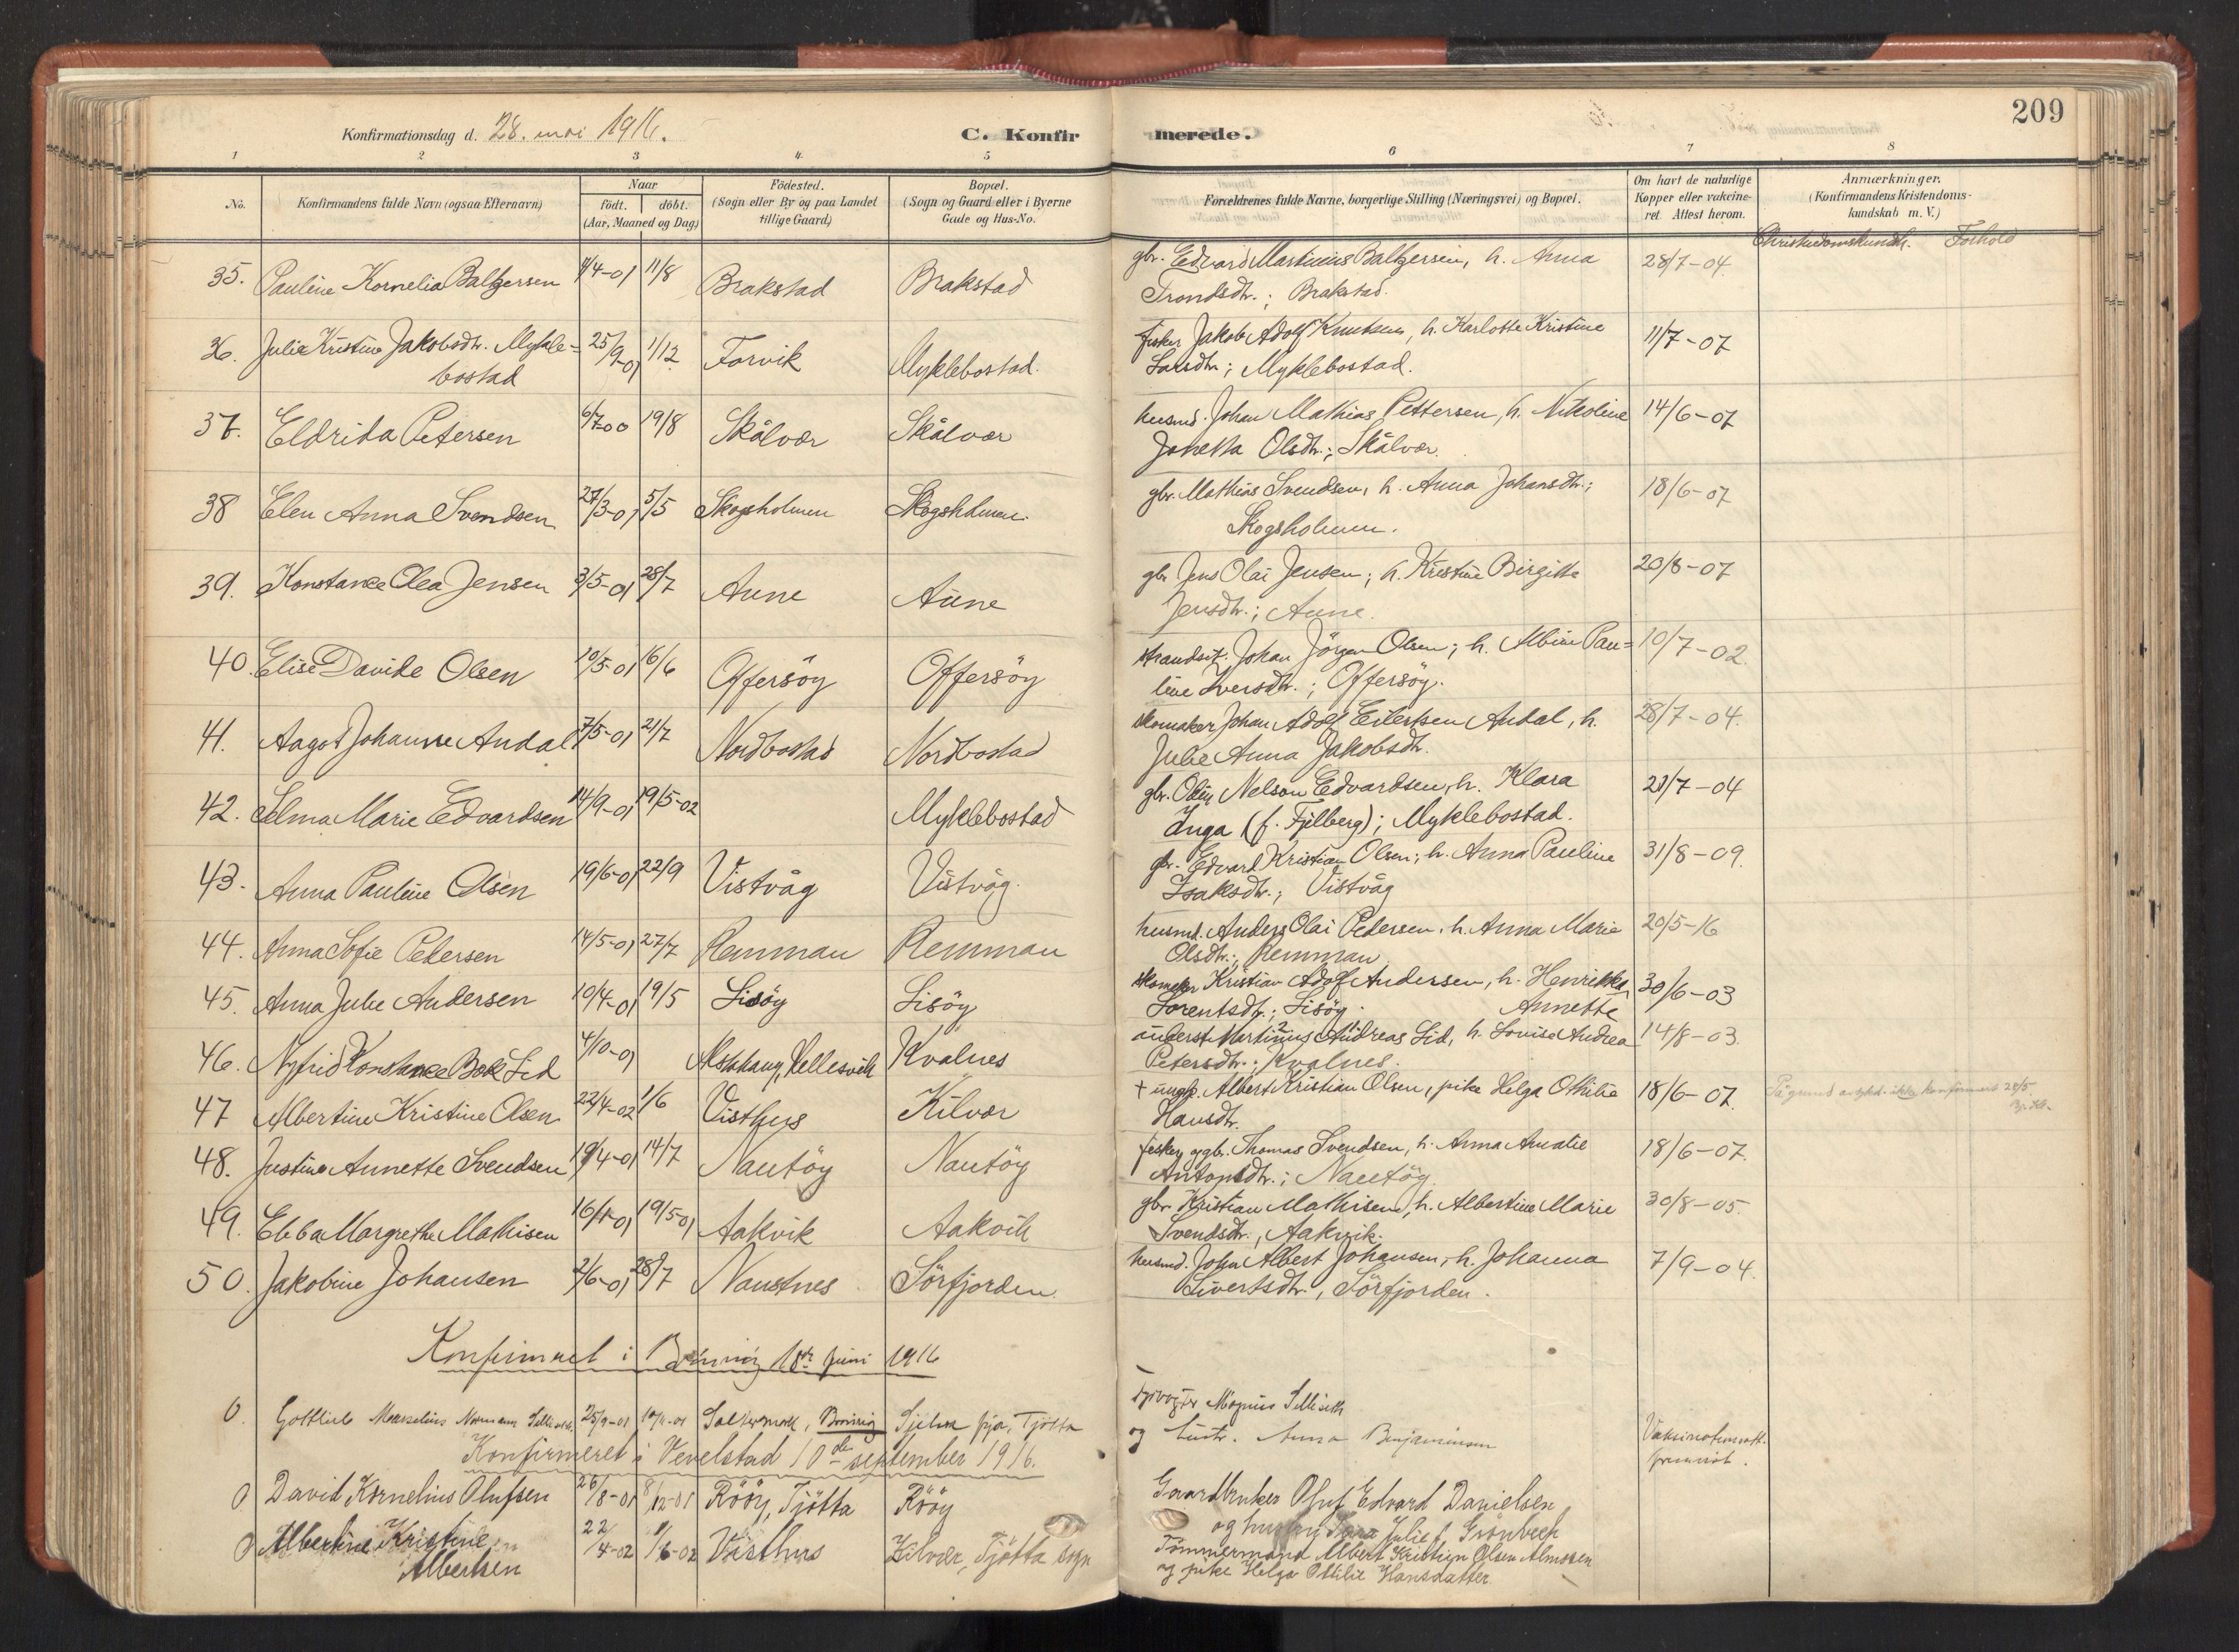 209
Konfirmationsdag d. 28. mai 1916.
C. Konfirmerede.
1 2 3 4 5 6 7 8
No.
Konfirmandens fulde Navn (ogsaa Efternavn)
Naar
født. døbt.
(Aar, Maaned og Dag)
Födested.
(Sogn eller By og paa Landet
tillige Gaard)
Bopæl.
(Sogn og Gaard eller i Byerne
Gade og Hus-No.
Forældrenes fulde Navne, borgerlige Stilling (Næringsvei) og Bopæl.
Om havt de naturlige
Kopper eller vakcine-
ret. Attest herom.
Anmærkninger.
(Konfirmandens Kristendoms-
kundskab m. V.)
Christendomskundsk. Forhold
35. Pauline Kornelia Baltzersen 4/4-01 11/8 Brakstad Brakstad gbr. Edvard Martinius Baltzersen, h. Anna 28/7-04.
Trondsdtr.; Brakstad.
36. Julie Kristine Jakobsdtr. Mykle- 25/9-01 1/12 Forvik Myklebostad. fisker Jakob Adolf Knutsen, h. Karlotte Kristine 11/7-07
bostad Larsdtr.; Myklebostad.
37. Eldrida Petersen 6/7-00 19/8 Skålvær Skålvær husmd. Johan Mathias Pettersen, h. Nikoline 14/6-07
Jonetta Olsdtr.; Skålvær.
38 Elen Anna Svendsen 27/3-01 5/5 Skogsholmen Skogsholmen. gbr. Mathias Svendsen, h. Anna Johansdtr.; 18/6-07
Skogsholmen.
39. Konstance Olea Jensen 3/5-01 28/7 Aune Aune gbr Jens Olai Jensen; h. Kristine Birgitte 20/8-07
Jensdtr.; Aune.
40. Elise Davide Olsen 10/5-01 16/6 Offersöy Offersöy strandsit. Johan Jörgen Olsen; h. Albine Pau- 10/7-02.
line Iversdtr.; Offersöy.
41. Aagot Johanne Andal 7/5-01 21/7 Nordbostad Nordbostad skomaker Johan Adolf Eilertsen Andal, h. 28/7-04.
Julie Anna Jakobsdtr.
42. Selma Marie Edvardsen 14/9-01 19/5-02 Myklebostad gbr. Nelson Edvardsen, h. Klara 21/7-04
Inga (f. Fjelberg); Myklebostad.
43. Anna Pauline Olsen 19/6-01 22/9 Vistvåg Vistvåg. gbr. Edvard Kristian Olsen; h. Anna Pauline 31/8-09.
Isaksdtr.; Vistvåg
44. Anna Sofie Pedersen 14/5-01 27/7 Remman Remman husmd. Anders Olai Pedersen, h. Anna Marie 20/5-16
Olsdtr.; Remman
45. Anna Julie Andersen 10/4-01 19/5 Lisöy Lisöy skomaker Kristian Adolf Andersen, h. Henrikka 30/6-03
Annette
Lorentsdtr.; Lisöy.
46. Konstance Lid 4/10-01 Alstahaug, Kvalnes Martinius Andreas Lid, h. Lovise Andrea 14/8-03.
Petersdtr.; Kvalnes.
47 Albertine Kristine Olsen 22/4-02 1/6 Visthus Kilvær + ungk. Albert Kristian Olsen, pike Helga Othilie 18/6-07. På grund av sykd. ikke konfirmert 28/5
Hansdtr.
48. Justine Annette Svendsen 19/4-01 14/7 Nautöy Nautöy fisker og gbr. Thomas Svendsen, h. Anna Amalie 18/6-07.
Antonsdtr.; Nautöy.
49. Ebba Margrethe Mathisen 16/1-01 19/5-01 Aakvik Aakvik gbr Kristian Mathisen, h. Albertine Marie 30/8-05.
Svendsdtr., Aakvik.
50. Jakobine Johansen 2/6-01 28/7 Naustnes Sörfjorden. husmd. John Albert Johansen, h. Johanna 7/9-04.
Sivertsdtr., Sörfjorden.
Konfirmert i Brönnöy 18de juni 1916
0. Gottlieb Marselius Normann 25/9-01 Brönnöy Tjötta Magnus
og hustr. Anna Benjaminsen
Konfirmeret i Vevelstad 10de september 1916.
0 David Kornelius Olufsen 26/8-01 8/12-01 Rööy, Tjötta Rööy Gaardbruker Oluf Edvard Danielsen
og hustru Julie f. Grönbech
0 Albertine Kristine 22/4-02 1/6-02 Visthus Kilvær, Tjötta sogn Tömmermand Albert Kristian Olsen Almosen
Albertsen og pike Helga Othilie Hansdatter